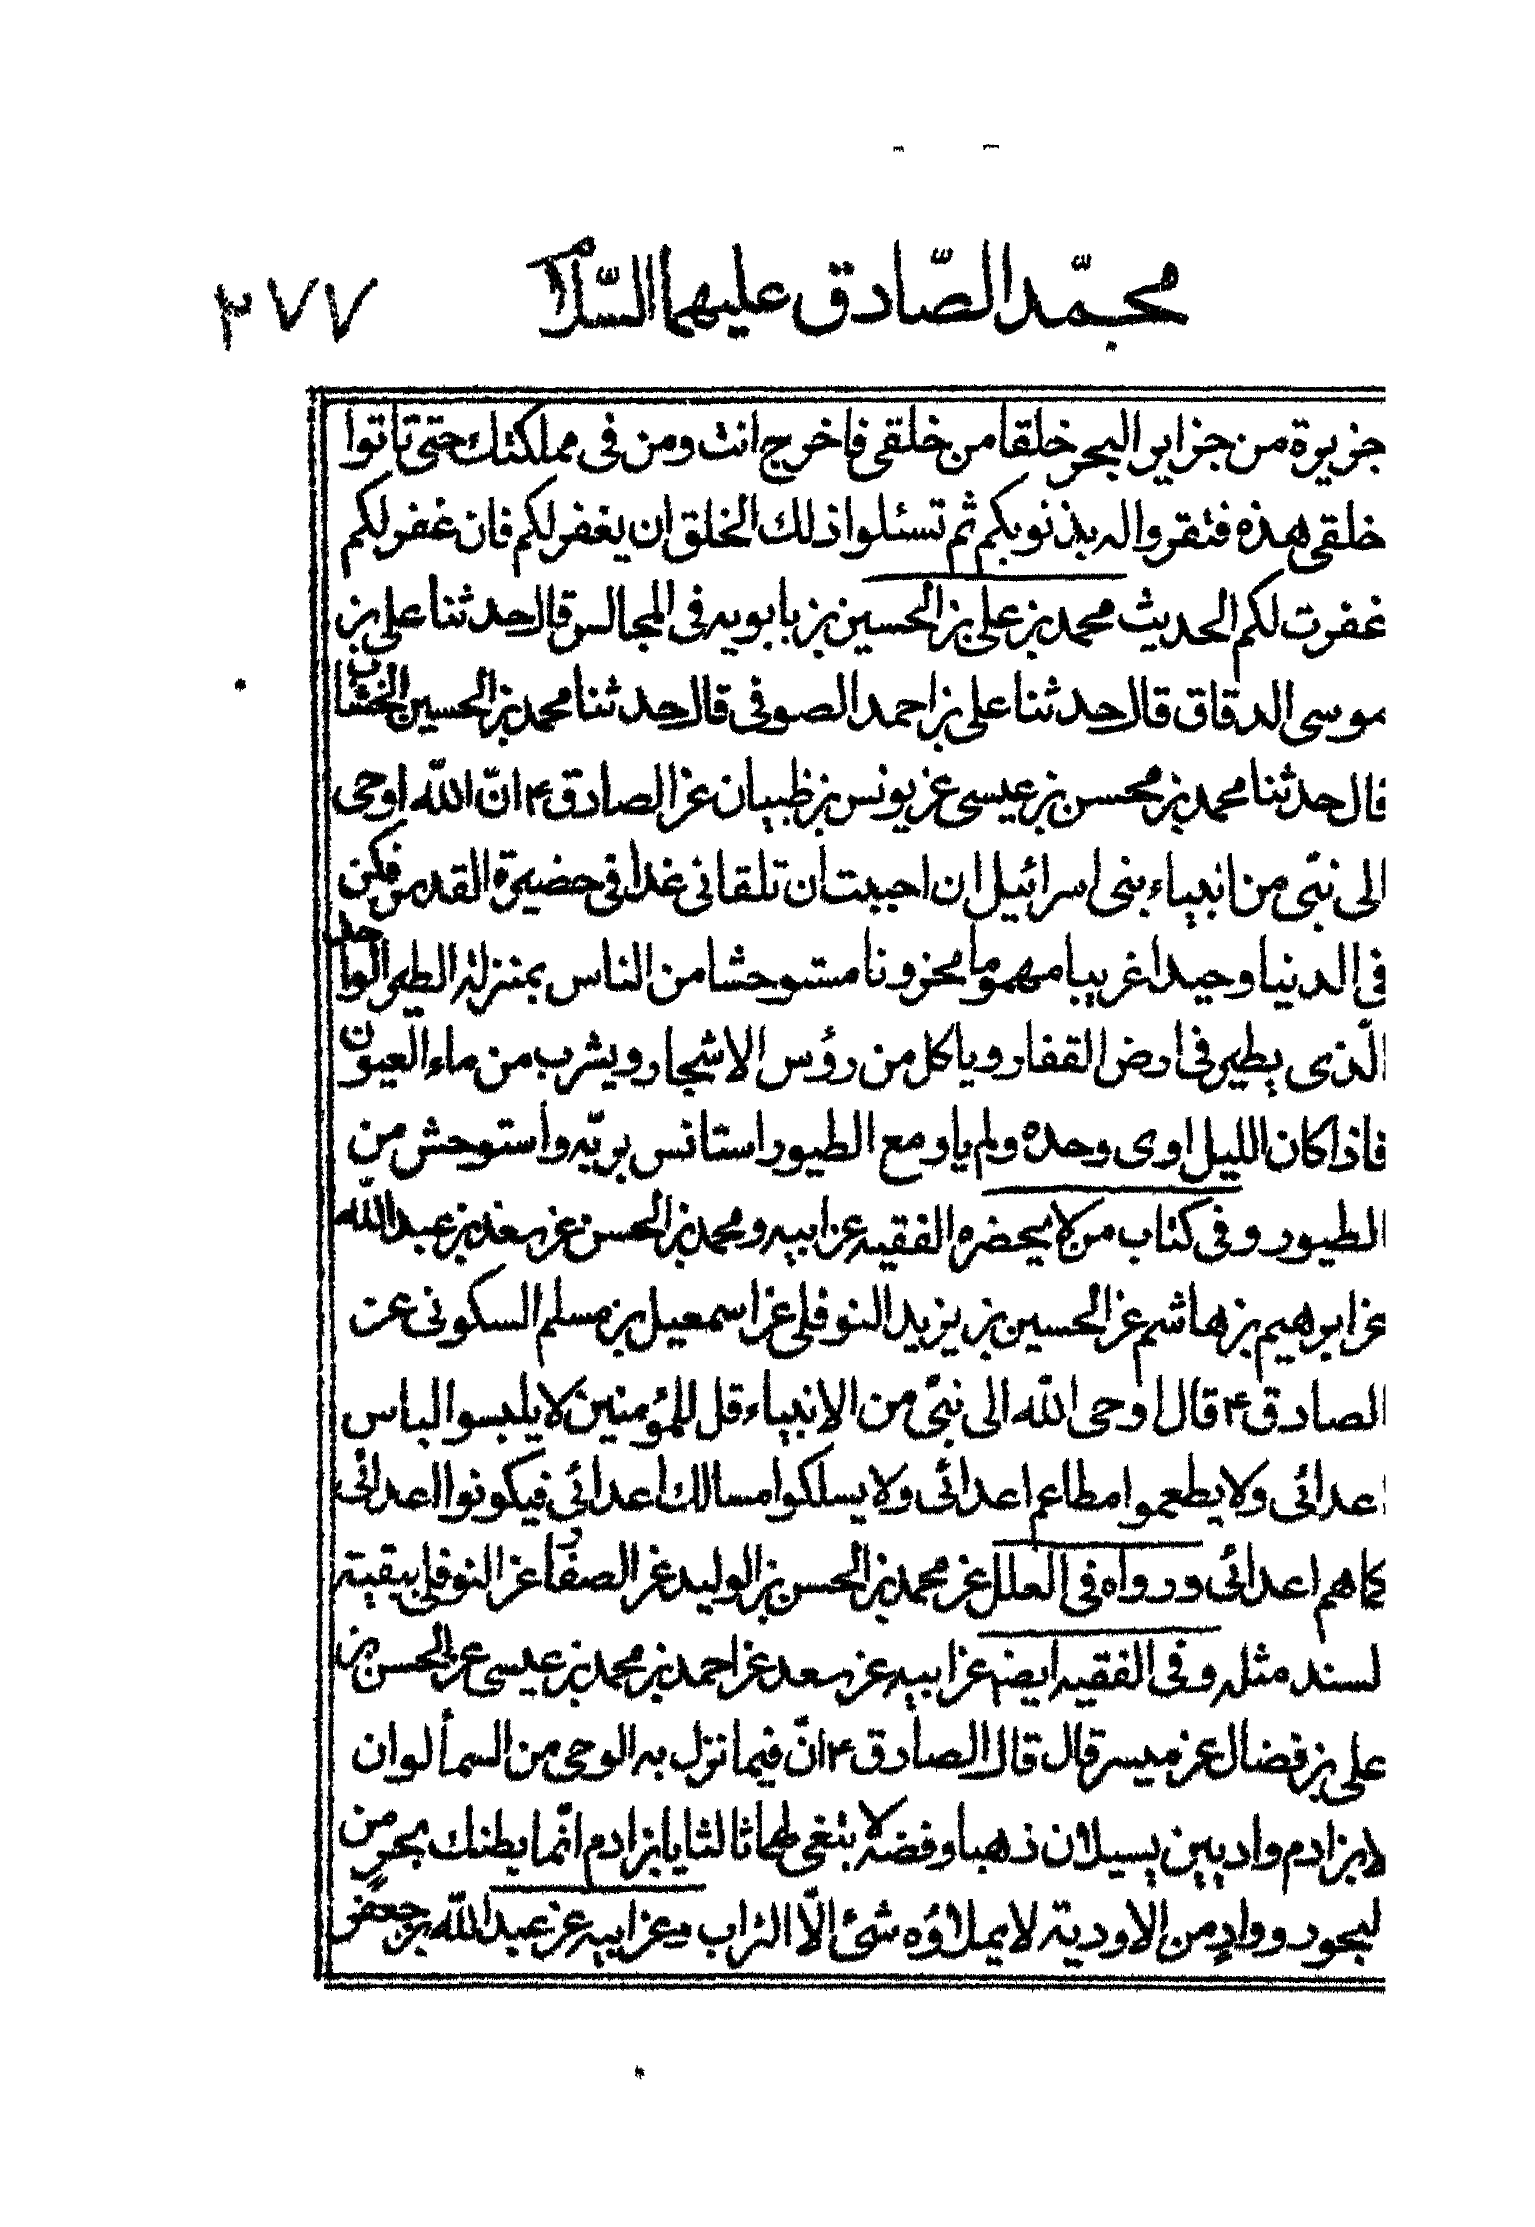 محمّد الصّادق عليهما السّلام ٢٧٧
جزيرة من جزاير البحر خلقا من خلقى فاخرج انت ومن فى مملكتك حتى تاتوا
خلقى هذه فتقروا له بذنوبكم ثم تسئلوا ذلك الخلق ان يغفر لكم فان غفر لكم
غفرت لكم الحديث محمد بن على بن الحسين بن بابويه فى المجالس قال حدثنا على بن
موسى الدقاق قال حدثنا على بن احمد الصوفى قال حدثنا محمد بن الحسين الخشاب
قال حدثنا محمد بن محسن بن عيسى عن يونس بن ظبيان عن الصادق ۴ انّ الله اوحى
الى نبىّ من انبياء بنى اسرائيل ان احببت ان تلقانى غدا فى حضيرة القدس فكن
فى الدنيا وحيدا غريبا مهموما محزونا مستوحشا من الناس بمنزلة الطير الواحد
الّذى يطير فى ارض القفار وياكل من رؤس الاشجار ويشرب من ماء العيون
فاذا كان الليل اوى وحده ولم ياو مع الطيور استانس بربّه واستوحش من
الطيور وفى كتاب من لا يحضره الفقيه عن ابيه ومحمد بن الحسن عن سعد بن عبد الله
عن ابرهيم بن هاشم عن الحسين بن يزيد النوفلى عن اسمعيل بن مسلم السكونى عن
الصادق ۴ قال اوحى الله الى نبىّ من الانبياء قل للمؤمنين لا يلبسوا لباس
اعدائى ولا يطعموا مطاعم اعدائى ولا يسلكوا مسالك اعدائى فيكونوا اعدائى
كما هم اعدائى ورواه فى العلل عن محمد بن الحسن بن الوليد عن الصفار عن النوفلى ببقية
لسند مثله وفى الفقيه ايضم عن ابيه عن سعد عن احمد بن محمد بن عيسى عن الحسن بن
على بن فضال عن ميسر قال قال الصادق ۴ انّ فيما نزل به الوحى من السمأ لو ان
لابن ادم واديين يسيلان ذهبا وفضة لا بتغى لهما ثالثا يا بن ادم انّما بطنك بحر من
لبحور وواد من الاودية لا يملاؤه شئ الّا التراب وعن ابيه عن عبد الله بن جعفر